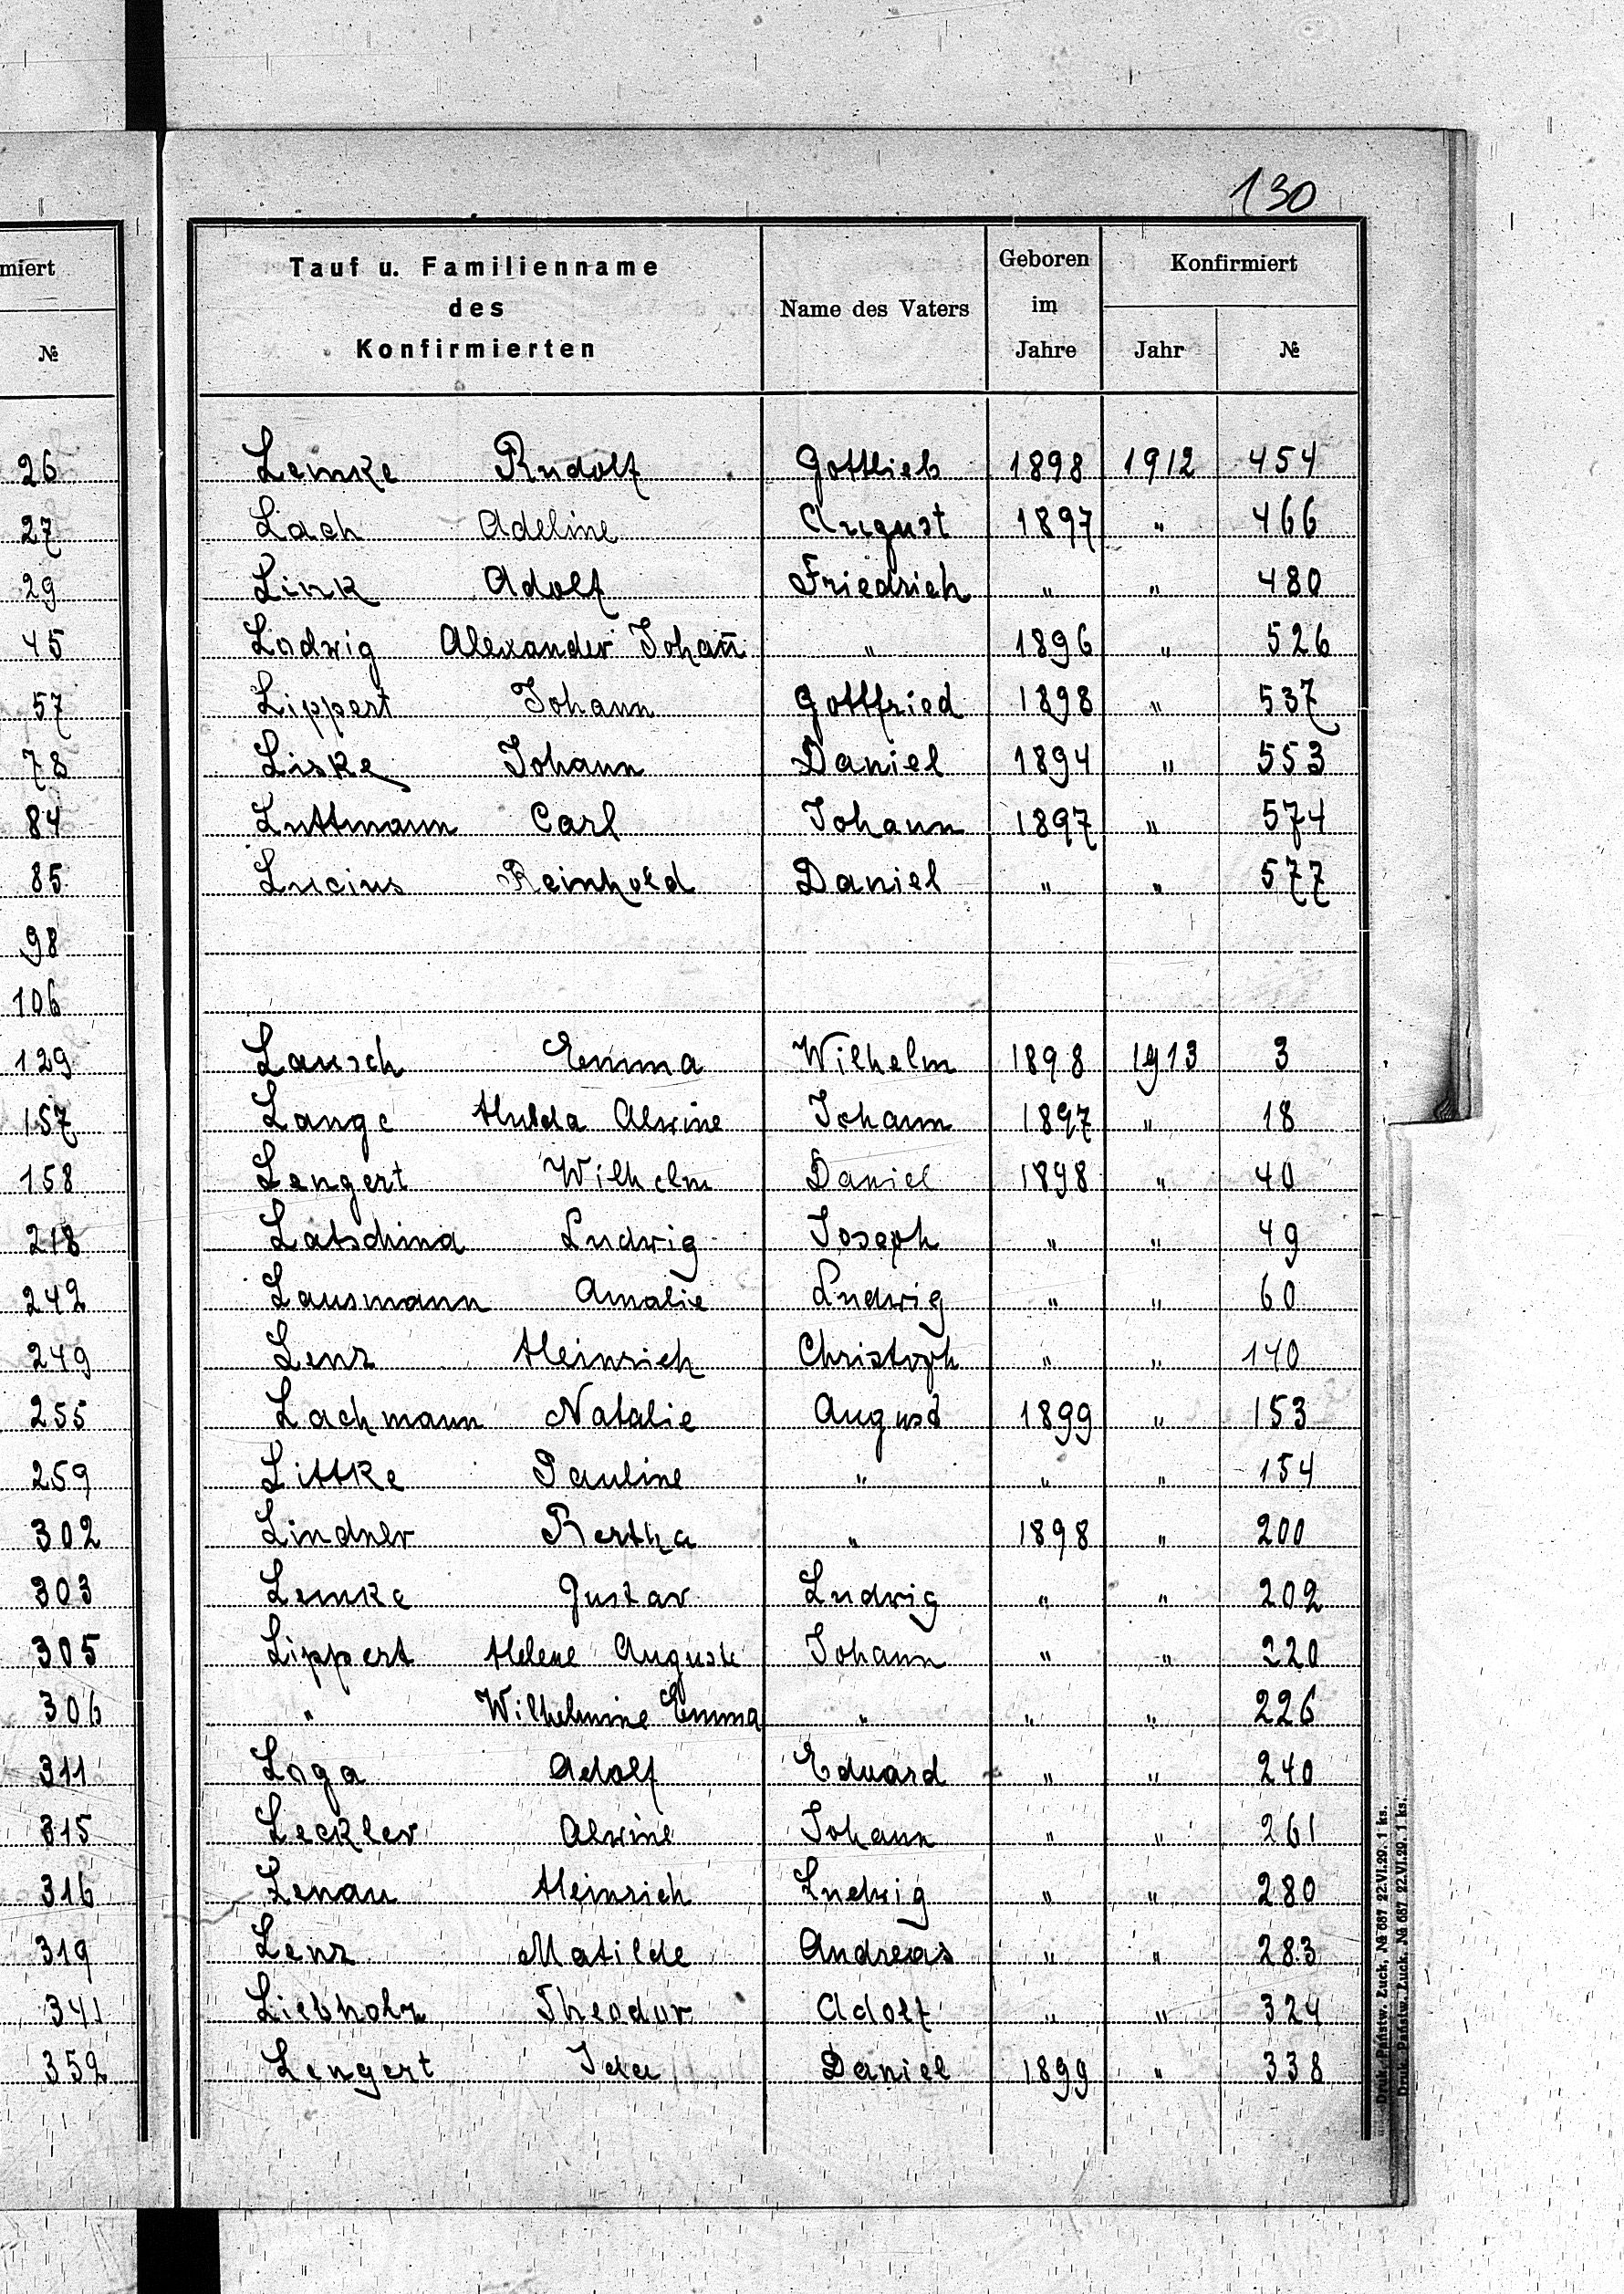 130
miert
№
26
27
29
45
57
78
84
85
98
106
129
157
158
218
242
249
255
259
302
303
305
306
311
315
316
319
341
352
Tauf u. Familienname des Konfirmierten | Name des Vaters | Geboren im Jahre | Konfirmiert Jahr | №
Lemke Rudolf Gottlieb 1898 1912 454
Lach Adeline August 1897 " 466
Link Adolf Friedrich " " 480
Lodwig Alexander Johan̄ " 1896 " 526
Lippert Johann Gottfried 1898 " 537
Liske Johann Daniel 1894 " 553
Luttmann Carl Johann 1897 " 574
Lucius Reinhold Daniel " " 577
Lausch Emma Wilhelm 1898 1913 3
Lange Hulda Alwine Johann 1897 " 18
Lengert Wilhelm Daniel 1898 " 40
Latschina Ludwig Joseph " " 49
Lausmann Amalie Ludwig " " 60
Lenz Heinrich Christoph " " 140
Lachmann Natalie August 1899 " 153
Littke Pauline " " " 154
Lindner Bertha " 1898 " 200
Lemke Gustav Ludwig " " 202
Lippert Helene Auguste Johann " " 220
" Wilhelmine Emma " " " 226
Loga Adolf Eduard " " 240
Leckler Alwine Johann " " 261
Lenau Heinrich Ludwig " " 280
Lenz Matilde Andreas " " 283
Liebholz Theodor Adolf " " 324
Lengert Ida Daniel 1899 " 338
Druk. Państw. Łuck. № 687 22.VI.29. 1 ks.
Druk. Państw. Łuck. № 687 22.VI.29. 1 ks.